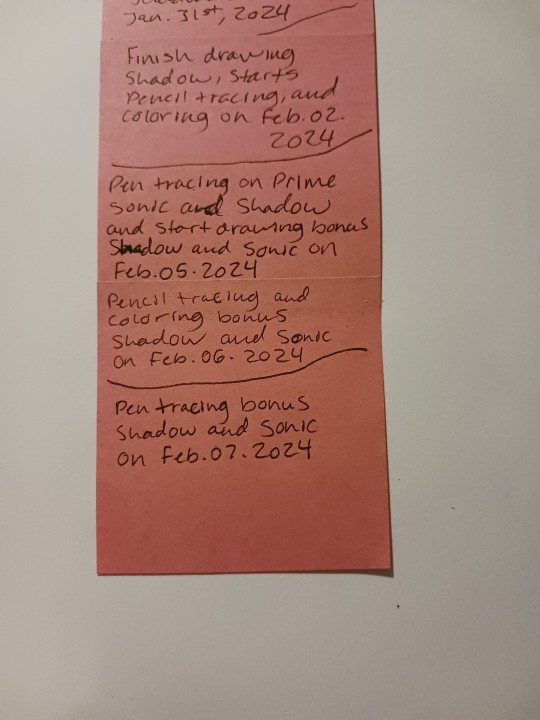 Jan. 31st, 2024
Finish drawing
Shadow, starts
Pencil tracing, and
coloring on Feb. 02.
2024
Pen tracing on Prime
Sonic and Shadow
and start drawing bonus
Shadow and Sonic on
Feb. 05. 2024
Pencil tracing and
coloring bonus
Shadow and Sonic
on Feb. 06. 2024
Pen tracing bonus
Shadow and Sonic
on Feb. 07. 2024